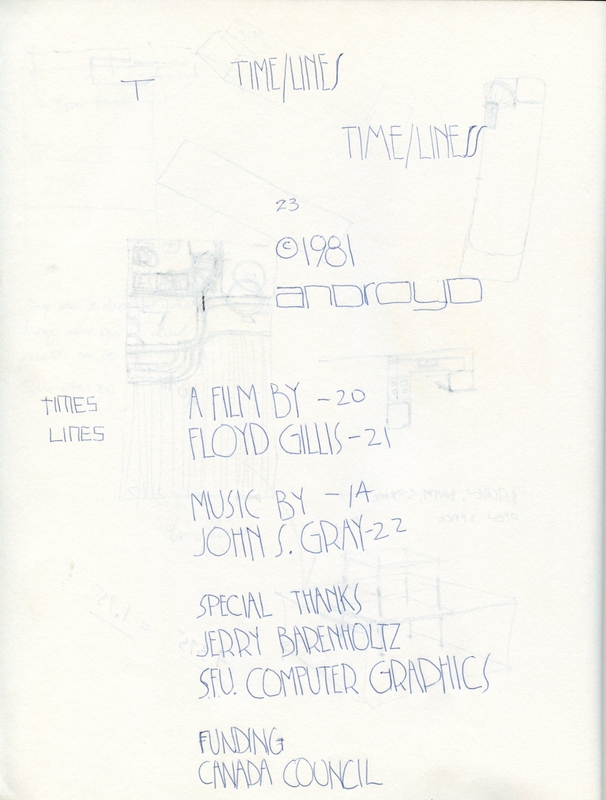 TIME/LINES
T
TIME/LINESS
23
©1981
androyd
TIMES
LINES
A FILM BY -20
FLOYD GILLIS-21
MUSIC BY -14
JOHN S. GRAY-22
SPECIAL THANKS
JERRY BARENHOLTZ
S.F.U. COMPUTER GRAPHICS
FUNDING
CANADA COUNCIL